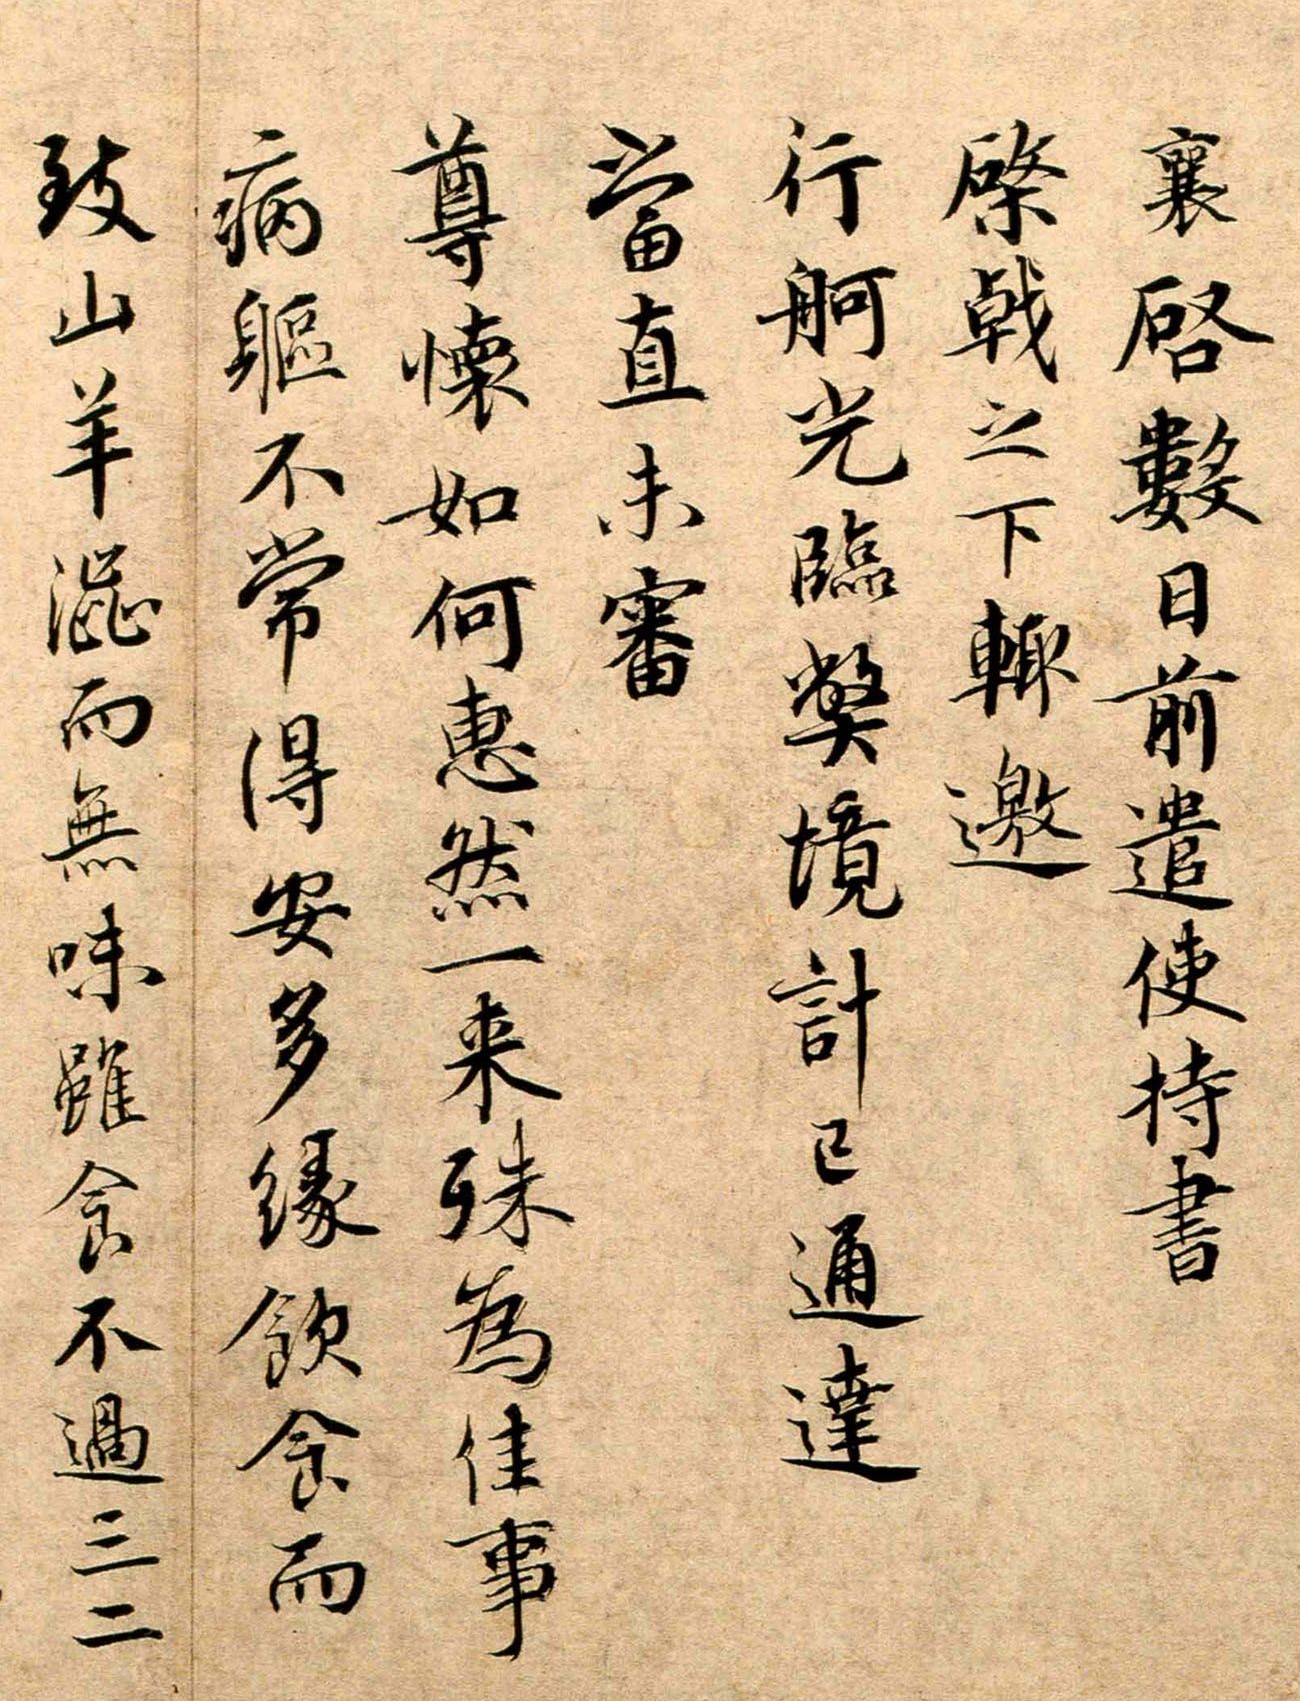 襄啓數日前遣使持書
棨戟之下輙邀
行舸光臨弊境計已通達
當直未審
尊懷如何惠然一来殊為佳事
病軀不常得安多緣飲食而
致山羊澁而無味雖食不過三二